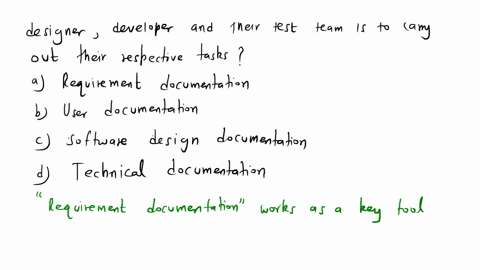 designer, developer and their test team is to carry
out their respective tasks?
a) Requirement documentation
b) User documentation
c) software design documentation
d) Technical documentation
"Requirement documentation" works as a key tool